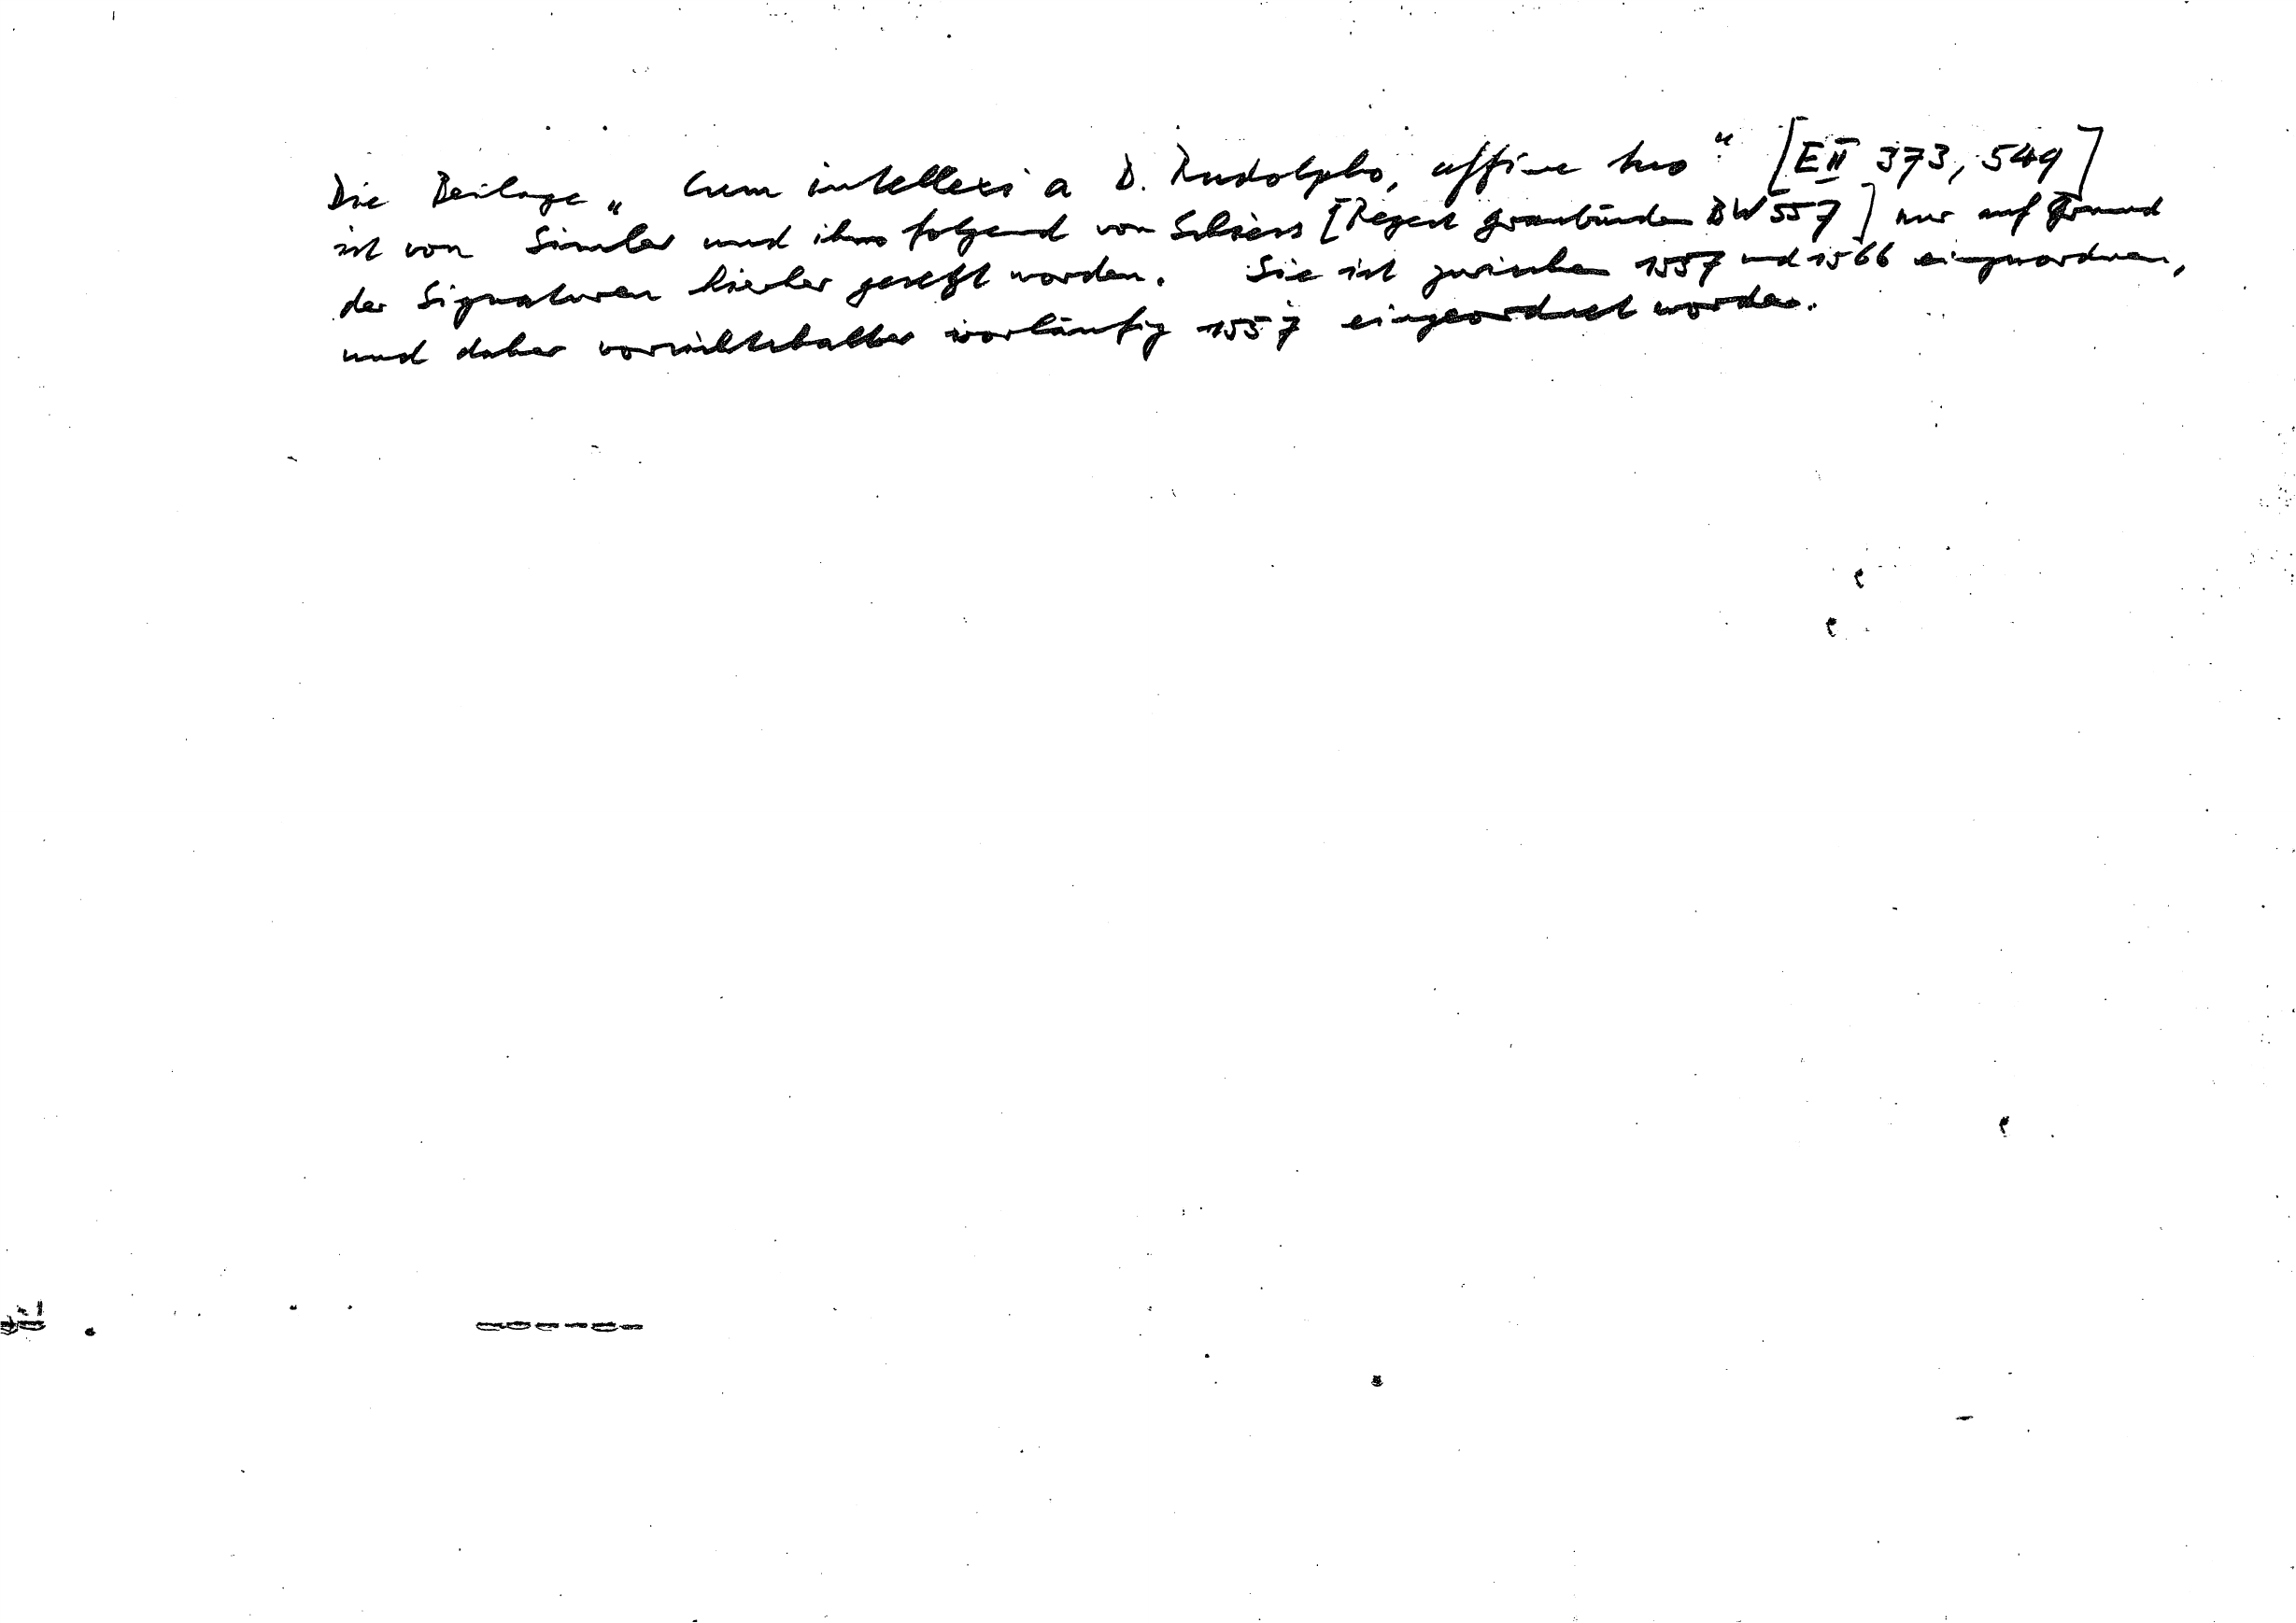 Die Beilage „ Cum intellexi a D. Rudolpho, affine tuo “ [E II 373, 549]
ist von Simler und ihm folgend von Schiess [Regest Graubünden BW 557] nur auf Grund
der Signaturen hierher gesetzt worden. Sie ist zwischen 1557 und 1566 einzuordnen,
und daher vorsichtshalber vorläufig 1557 eingeordnet worden.